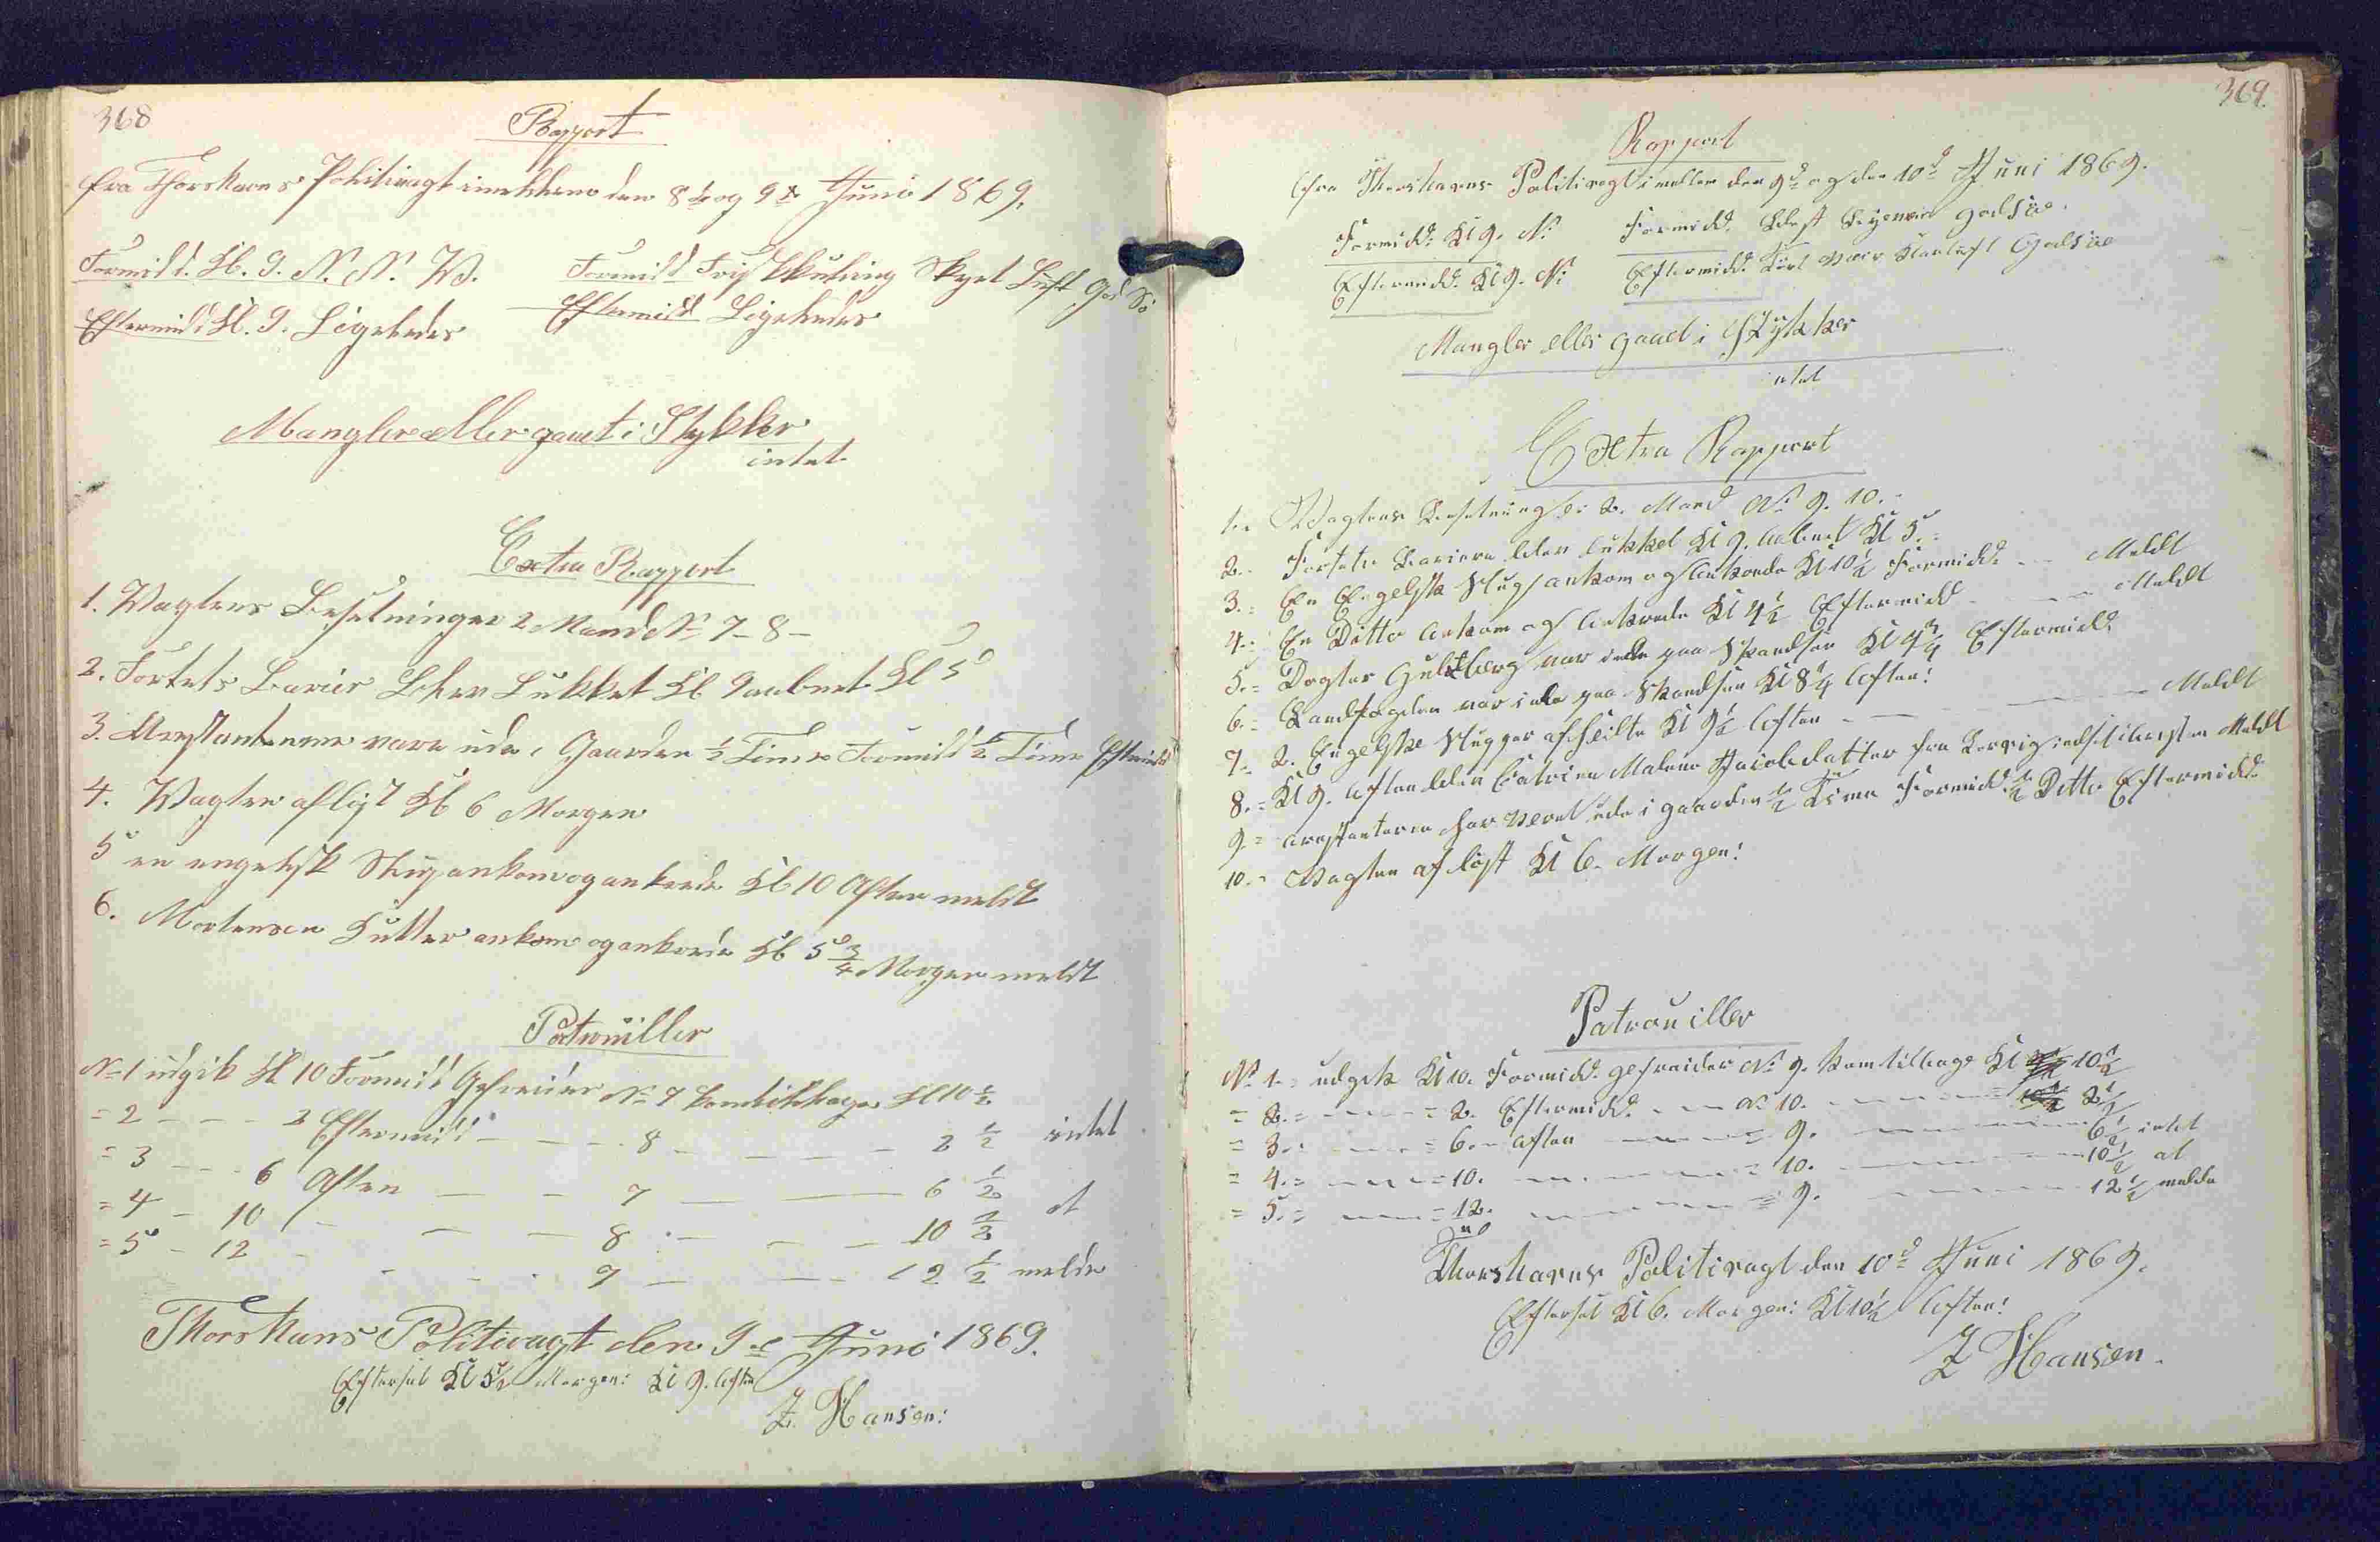 368
Rapport
fra Thorshavns Politivagt imellem den 8de og 9de Juni 1869.
Formidd. Kl. 9. N. N. W. Formidd Frisk Kuling Skyet Luft God Sö
Eftermidd Kl. 9. Ligeledes Eftermidd Ligeledes
Mangler eller gaaet i Stykker
intet
Extra Rapport
1. Vagtens Besetninger 2 Mand No 7-8-
2. Fortets Barier blev Lukket Kl 9 aabnet Kl 5
3. Arrestanterne vare ude i Gaarden ½ Time Formidd ½ Time Eftermidd
4. Vagten aflöst Kl 6 Morgen
5 en engelsk Slup ankom og ankrede Kl 10 Aften meldt
6. Mortensen Kutter ankom og ankrede Kl 5 ¾ Morgen meldt
Patrouiller
No 1 udgik Kl 10 Formidd Gefreider No 7 kom tilbage Kl 10 ½
= 2 - - - 2 Eftermidd - - - 8 - - - - 2 ½ intet
= 3 - - - 6 Aften - - 7 - - 6 ½
= 4 - 10 - - - 8 - - - 10 ½ at
= 5 - 12 - - - 7 - - - 12 ½ melde
Thorshavns Politivagt den 9de Juni 1869.
Efterset Kl 5½ Morgen: Kl 9. Aften
Z. Hansen:
369.
Rapport
fra Thorshavns Politivagt imellem den 9d og den 10d Juni 1869.
Formidd: Kl 9. N: Formidd. Blest Regnveir god söe.
Eftermidd. Kl 9. N: Eftermidd. Kuel Veir Klarluft God söe
Mangler eller gaaet i Stykker
intet
Extra Rapport
1.. Vagtens Besetning er 2. Mand No 9. 10.-
2.. Fortets Bariere blev lukket Kl 9. aabnet Kl 5.=
3.= En Engelsk Slup ankom og ankrede Kl 10½ Formidd. - - Meldt
4.= En Ditto ankom og ankrede Kl 4½ Eftermidd - - - Meldt
5.= Dogter Guldberg var inde paa Skandsen Kl 4¾ Eftermidd.
6.= Landfogden var inde paa Skandsen Kl 8¼ Aften!
7.= 2. Engelske Slupper afseilte Kl 9½ Aften - - - Meldt
8.= Kl 9. Aften blev Catrine Malene Jacobsdatter fra indsat i Arresten Meldt
9.= arrestanterne har veret ude i gaarden ½ Time Formidd. ½ Ditto Eftermidd.
10.= Vagten aflöst Kl 6. Morgen!
Patrouiller
No 1.= udgik Kl 10. Formidd. gefreider No 9. kom tilbage Kl 10½
= 2.= - - - = 2. Eftermidd. - - No 10. - - - = 2½
= 3.= - - - = 6.= Aften - - - = 9. - - - 6½ intet
= 4.= - - - = 10. - - - = 10. - - - 10½ at
= 5.= - - - = 12. - - - = 9. - - - 12½ melde
Thorshavns Politivagt den 10d Juni 1869.
Efterset Kl 6. Morgen: Kl 10½ Aften!
Z Hansen.